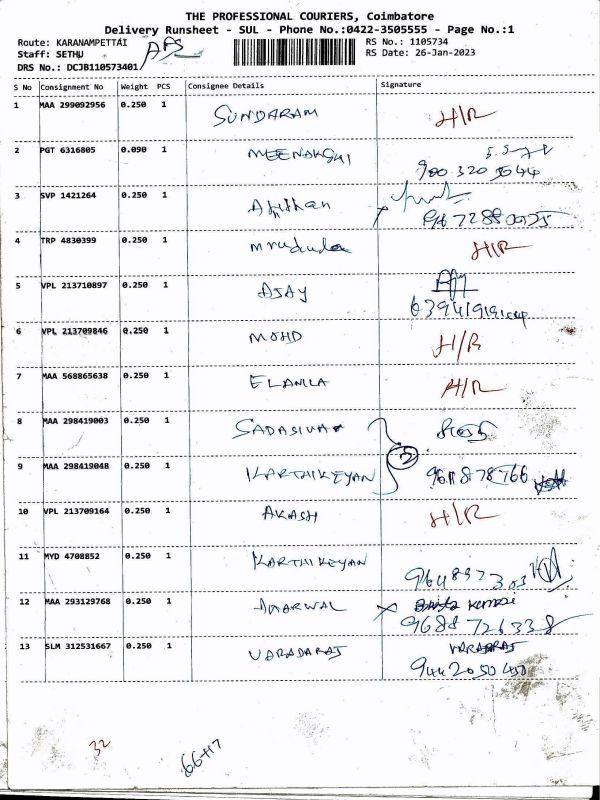 THE PROFESSIONAL COURIERS, Coimbatore
Delivery Runsheet - SUL - Phone No.:0422-3505555 - Page No.:1
Route: KARANAMPETTAI
RS No.: 1105734
Staff: SETHU
RS Date: 26-Jan-2023
DRS No.: DCJB110573401
S No Consignment No Weight PCS Consignee Details Signature
1 MAA 299092956 0.250 1 SUNDARAM H/R
2 PGT 6316805 0.090 1 MEENAKSHI
900 320 5044
3 SVP 1421264 0.250 1
4 TRP 4830399 0.250 1 mrudula H/R
5 VPL 213710897 0.250 1 AJAY
6 VPL 213709846 0.250 1 MOHD H/R
7 MAA 568865638 0.250 1 ELANILA H/R
8 MAA 298419003 0.250 1 SADASIVA
9 MAA 298419048 0.250 1 KARTHIKEYAN
10 VPL 213709164 0.250 1 AKASH H/R
11 MYD 4708852 0.250 1 KARTHIKEYAN
12 MAA 293129768 0.250 1
9688726338
13 SLM 312531667 0.250 1 VARADARAJ VARADARAJ
9442050450
32
66+17